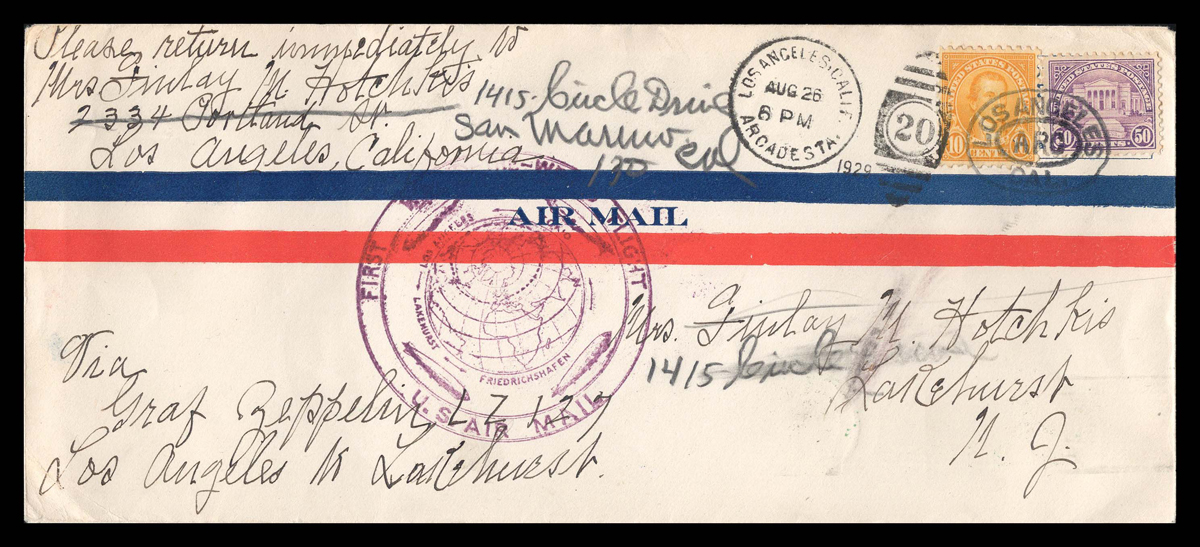 Please return immediately to
Mrs Finlay M Hotchkis
2334 Portland St.
Los Angeles, California
1415 Circle Drive
San Marino
Cal
LOS ANGELES, CALIF.
AUG 26
6 PM
ARCADE STA.
1929
20
UNITED STATES POSTAGE
10 CENTS 10
50 CENTS 50
LOS ANGELES
ARC
CAL.
AIR MAIL
FIRST FLIGHT
LOS ANGELES
LAKEHURST
FRIEDRICHSHAFEN
U.S. AIR MAIL
Mrs. Finlay M. Hotchkis
1415 Circle
Lakehurst
N. J.
Via
Graf Zeppelin LZ 127
Los Angeles to Lakehurst.